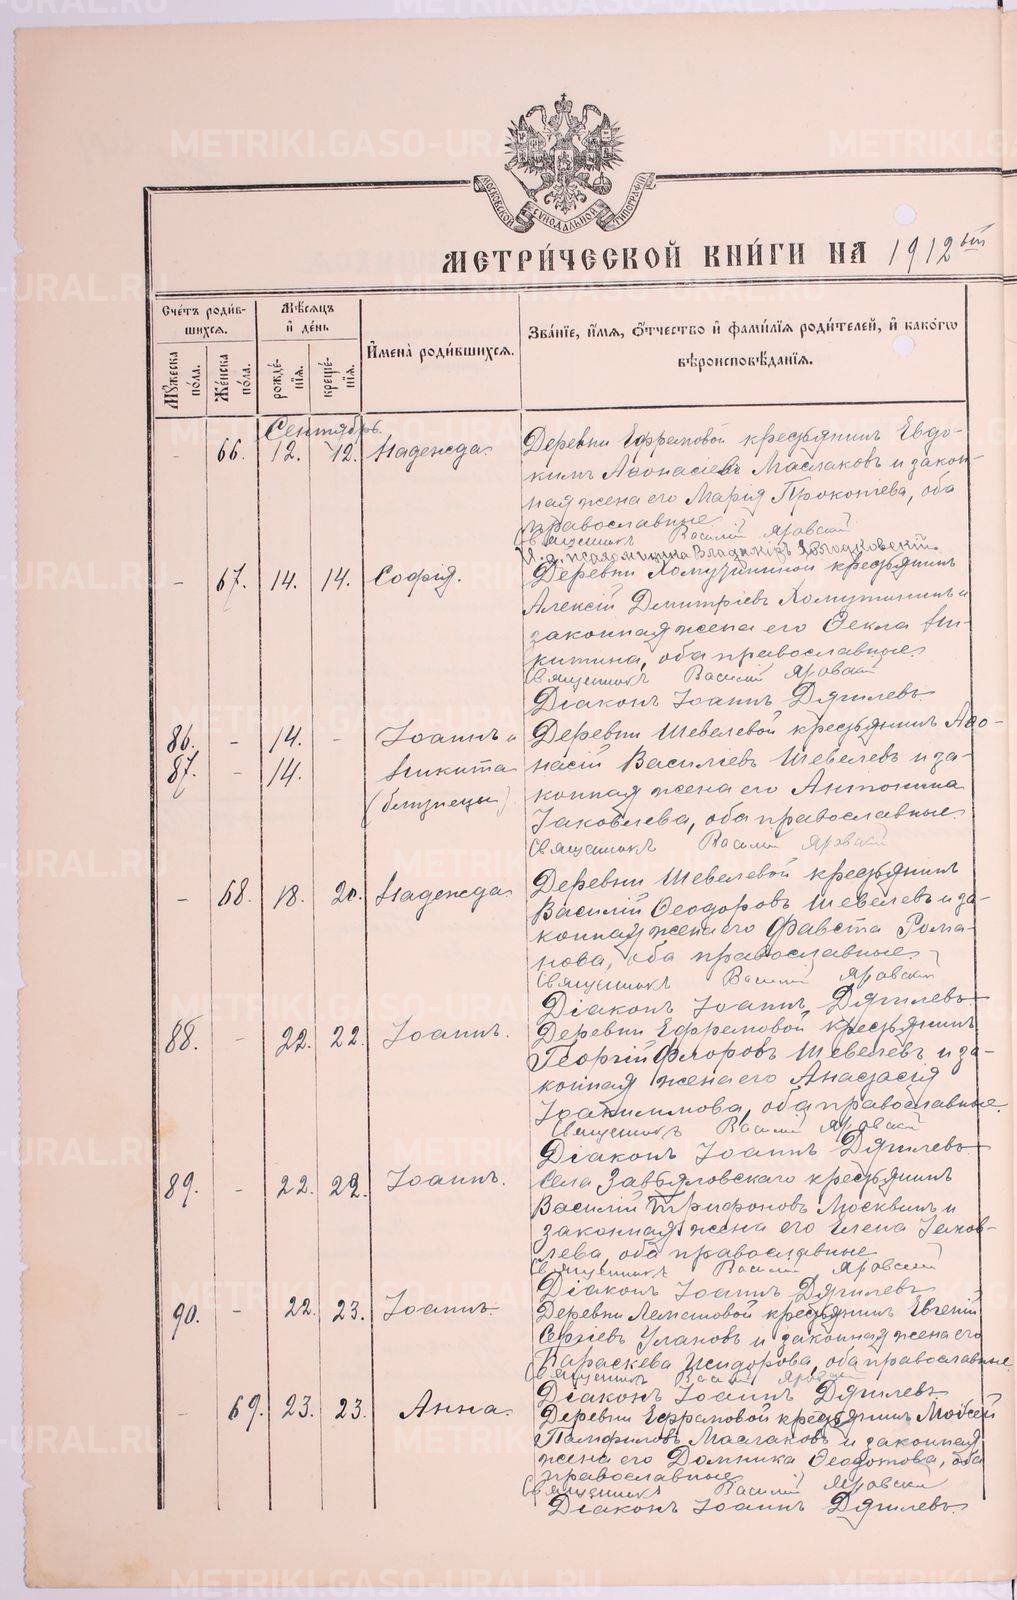 МОСКОВСКОЙ СѴНОДАЛЬНОЙ ТИПОГРАФІИ
МЕТРИ́ЧЕСКОЙ КНИ́ГИ НА 1912 ый
Сче́тъ роди́в-
шихся.
Мꙋ́жеска
по́ла.
Же́нска
по́ла.
Мѣ́сяцъ
и҆ де́нь.
рожде́-
нїя.
креще́-
нїя.
И҆мена̀ роди́вшихся.
Зва́нїе, и҆́мя, ѻ҆́тчество и҆ фами́лїя роди́телей, и҆ како́гѡ
вѣроисповѣ́данїя.
Сентябрь.
- 66. 12. 12. Надежда. Деревни Ефремовой крестьянинъ Евдо-
кимъ Аѳонасіевъ Маслаковъ и закон-
ная жена его Марія Прокопіева, оба
православные
Священникъ Василій Яровскій
И. д. псаломщика Владиміръ
- 67. 14. 14. Софія. Деревни Хомутининой крестьянинъ
Алексій Димитріевъ Хомутининъ и
законная жена его Ѳекла Ни-
китина, оба православные
Священникъ Василій Яровскій
Діаконъ Іоаннъ Дягилевъ
86. - 14. - Іоаннъ и Деревни Шевелевой крестьянинъ Аѳо-
87. - 14. Никита насій Василіевъ Шевелевъ и за-
(близнецы) конная жена его Антонина
Іаковлева, оба православные.
Священникъ Василій Яровскій
- 68. 18. 20. Надежда. Деревни Шевелевой крестьянинъ
Василій Ѳеодоровъ Шевелевъ и за-
конная жена его Фавста Рома-
нова, оба православные
Священникъ Василій Яровскій
Діаконъ Іоаннъ Дягилевъ
88. - 22. 22. Іоаннъ. Деревни Ефремовой крестьянинъ
Георгій Флоровъ Шевелевъ и за-
конная жена его Анастасія
Іоакимова, оба православные.
Священникъ Василій Яровскій
Діаконъ Іоаннъ Дягилевъ
89. - 22. 22. Іоаннъ. Села Завьяловскаго крестьянинъ
Василій Трифоновъ Москвинъ и
законная жена его Елена Іаков-
лева, оба православные
Священникъ Василій Яровскій
Діаконъ Іоаннъ Дягилевъ
90. - 22. 23. Іоаннъ Деревни крестьянинъ Евгеній
Сергіевъ Улановъ и законная жена его
Параскева Исидорова, оба православные.
Священникъ Василій Яровскій
Діаконъ Іоаннъ Дягилевъ
- 69. 23. 23. Анна. Деревни Ефремовой крестьянинъ Моѵсей
Памфиловъ Маслаковъ и законная
жена его Домника Ѳеодотова, оба
православные
Священникъ Василій Яровскій
Діаконъ Іоаннъ Дягилевъ
METRIKI.GASO-URAL.RU